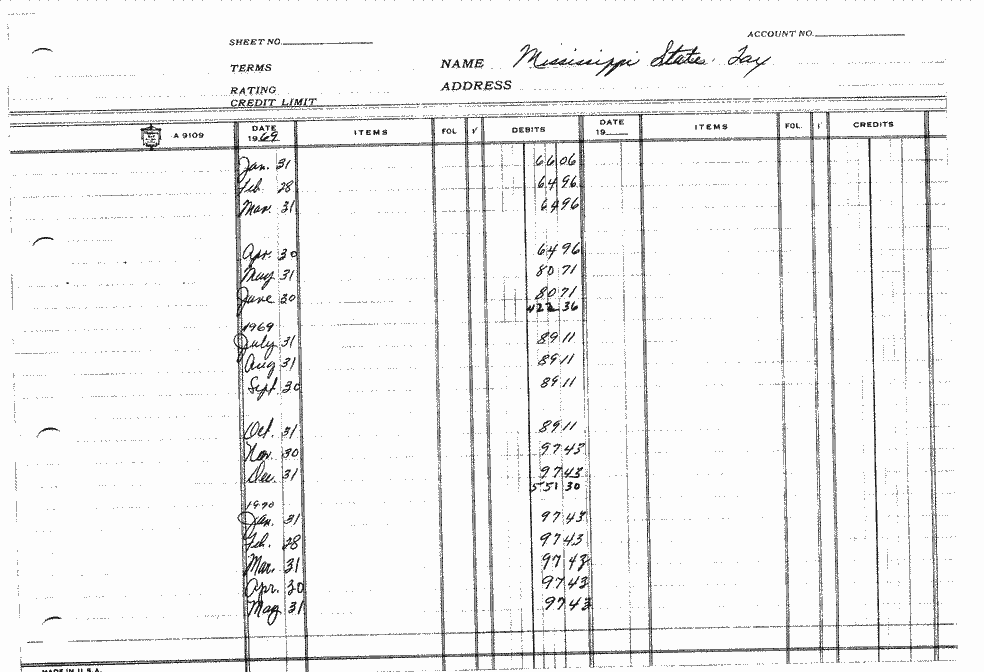 SHEET NO. ACCOUNT NO.
TERMS NAME Mississippi State Tax
RATING ADDRESS
CREDIT LIMIT
A 9109 DATE 1969 ITEMS FOL. √ DEBITS DATE 19 ITEMS FOL. √ CREDITS
Jan. 31 66 06
Feb. 28 64 96
Mar. 31 64 96
Apr. 30 64 96
May 31 80 71
June 30 80 71
422 36
1969
July 31 89 11
Aug 31 89 11
Sept 30 89 11
Oct. 31 89 11
Nov. 30 97 43
Dec. 31 97 43
551 30
1970
Jan. 31 97 43
Feb. 28 97 43
Mar. 31 97 43
Apr. 30 97 43
May 31 97 43
MADE IN U.S.A.